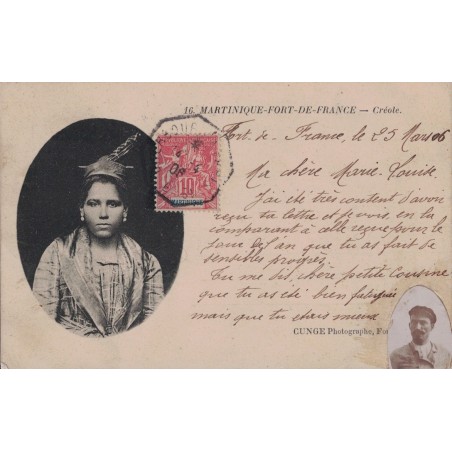 16. MARTINIQUE-FORT-DE-FRANCE — Créole.
Fort-de-France, le 25 Mars 06
Ma chère Marie-Louise
J'ai été très content d'avoir
reçu ta lettre et je vois, en la
comparant à celle reçue pour le
jour de l'an que tu as fait de
sensibles progrès.
Tu me dis, chère petite cousine
que tu as été bien fatiguée
mais que tu étais mieux
CUNGE Photographe, Fo
10